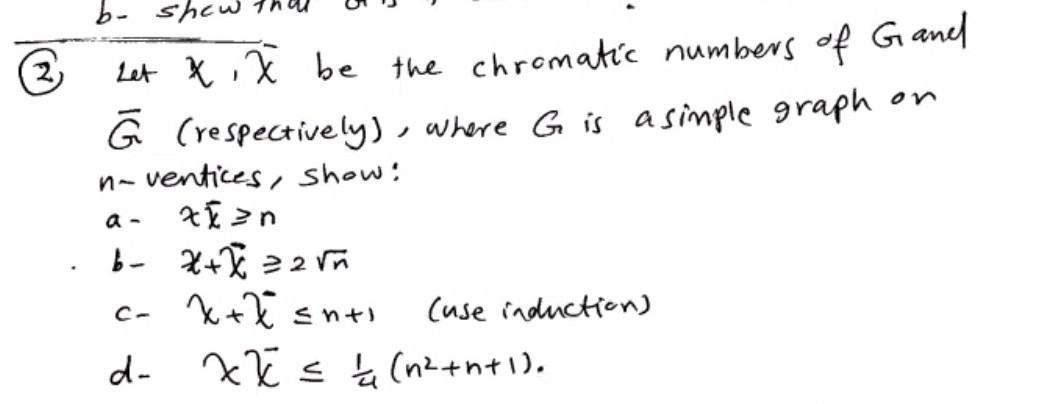 b- show that
② Let χ, χ̄ be the chromatic numbers of G and
Ḡ (respectively), where G is a simple graph on
n- ventices, show:
a- χχ̄ ≥ n
b- χ+χ̄ ≥ 2√n
c- χ+χ̄ ≤ n+1 (use induction)
d- χχ̄ ≤ 1/4 (n²+n+1).